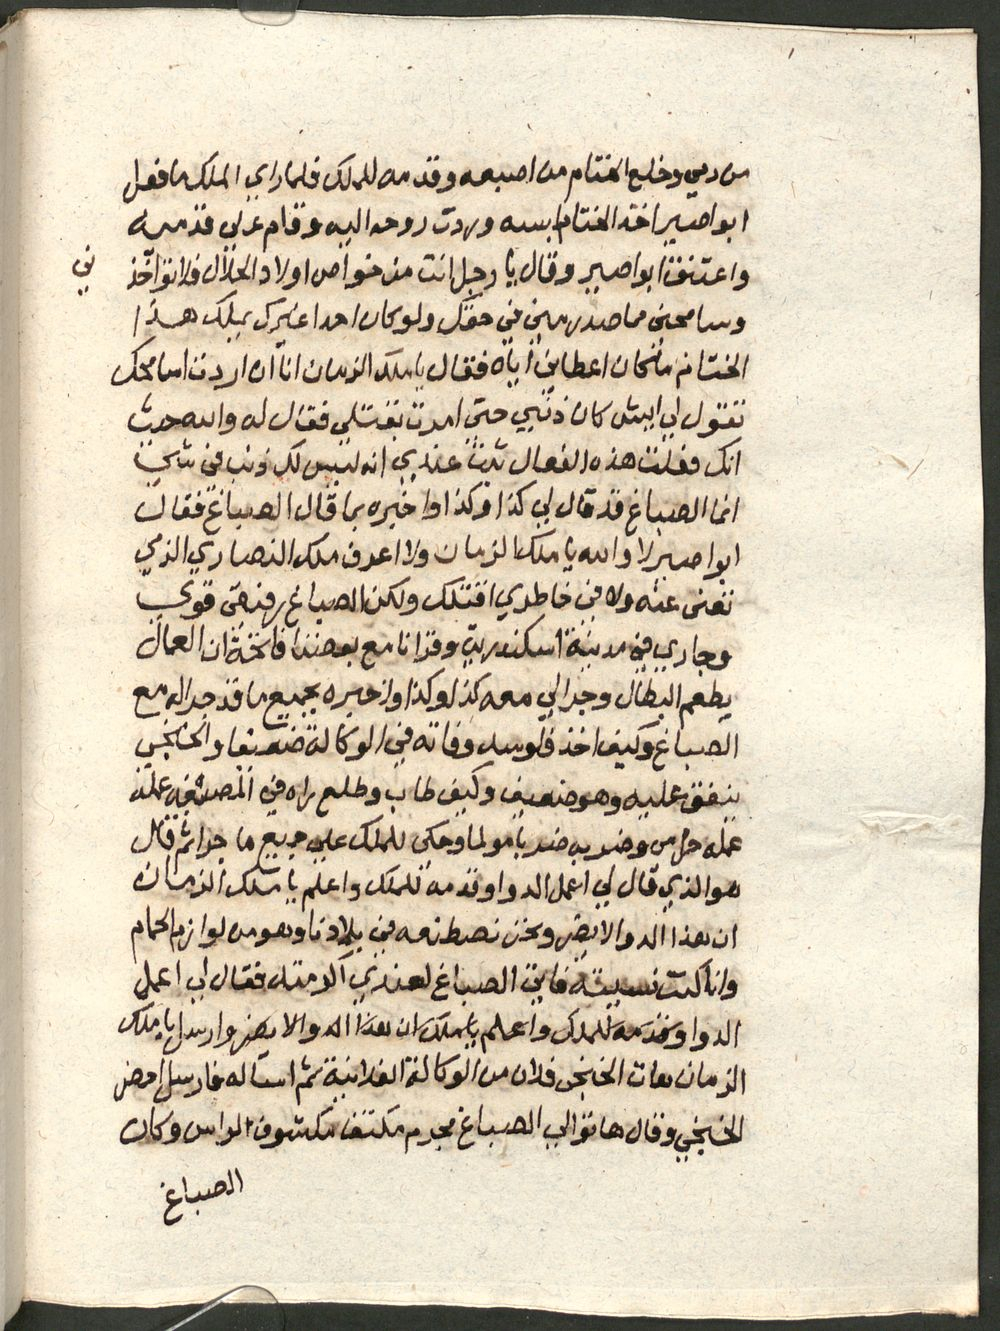 من دمي وخلع الختام من اصبعه وقدمه للملك فلما راي الملك ما فعل
ابو اصير اخد الختام لبسه وردت روحه اليه وقام علي قدميه
واعتنق ابو اصير وقال يا رجل انت من خواص اولاد الحلال فلا تواخذ
ني
وسامحني مما صدر مني في حقك ولو كان احدا غيرك يملك هذا
الختام ما كان اعطاني اياه فقال يا ملك الزمان انا ان اردت اسامحك
تقول لي ايش كان ذنبي حتي امرت بقتلي فقال له والله حيث
انك فعلت هذه الفعال ثبت عندي انه ليس لك ذنب في شي
انما الصباغ قد قال لي كذا وكذا واخبره بما قال الصباغ فقال
ابو اصير لا والله يا ملك الزمان ولا اعرف ملك النصاري الذي
تعني عنه ولا في خاطري اقتلك ولكن الصباغ رفيقي قوي
وجاري في مدينة اسكندرية وقرانا مع بعضنا فاتحة ان العمال
يطعم البطال وجرالي معه كذا وكذا واخبره بجميع ما قد جراله مع
الصباغ وكيف اخذ فلوسه وفاته في الوكالة ضعيفا والخنجي
ينفق عليه وهو ضعيف وكيف طاب وطلع راه في المصبغه عمله
عمله حرامي وضربه ضربا مولما وحكي للملك علي جميع ما جرا ثم قال
هو الذي قال لي اعمل الدوا وقدمه للملك واعلم يا ملك الزمان
ان هذا الدوا لا يضر ونحن نصطنعه في بلادنا وهو من لوازم الحمام
وانا كنت نسيته فاتي الصباغ لعندي اكرمته فقال لي اعمل
الدوا وقدمه للملك واعلم يا ملك ان هذا الدوا لا يضر وارسل يا ملك
الزمان هات الخنجي فلان من الوكالة الفلانية ثم اساله فارسل احضر
الخنجي وقال هاتوا لي الصباغ مجرم مكتف مكشوف الراس وكان
الصباغ